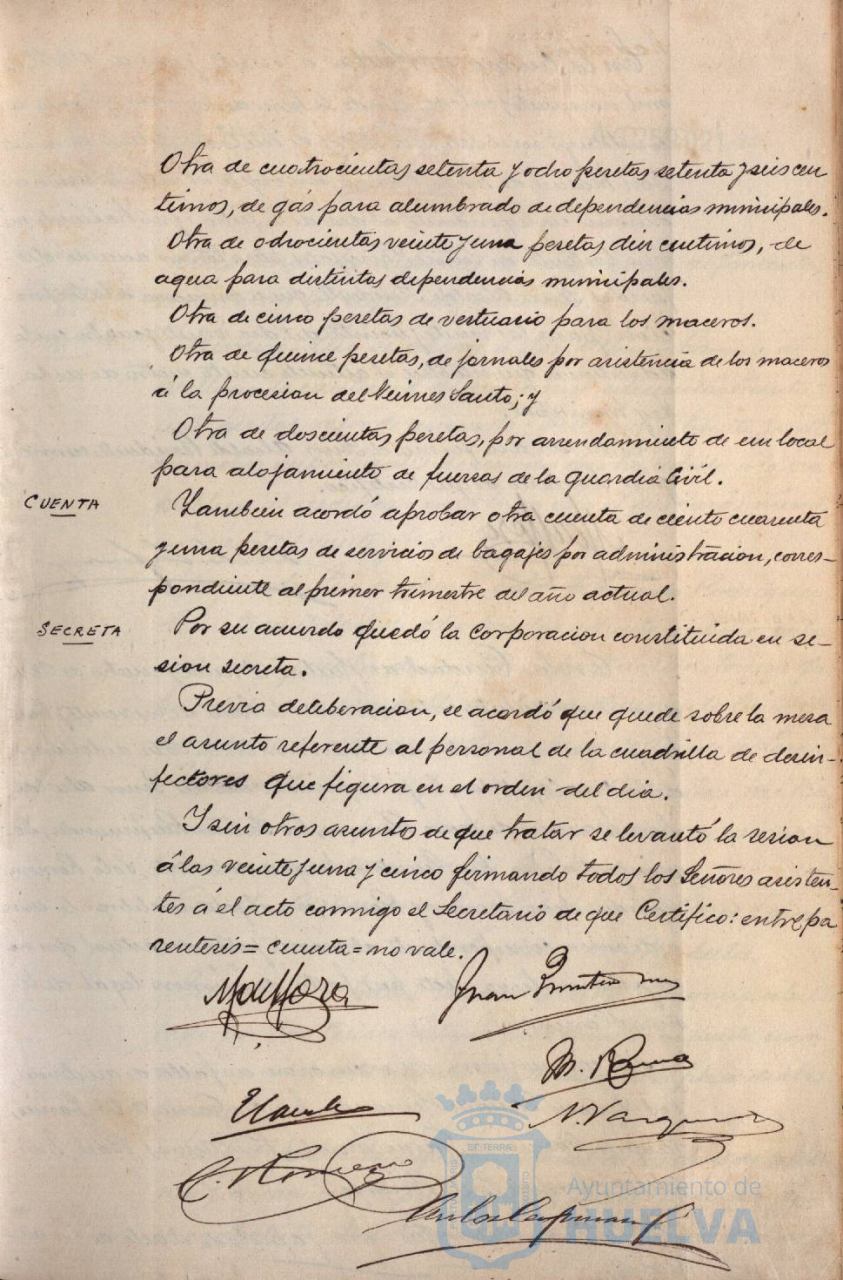 Otra de cuatrocientas setenta y ocho pesetas setenta y seis cen
timos, de gás para alumbrado de dependencias municipales.
Otra de ochocientas veinte y una pesetas diez centimos, de
agua para distintas dependencias municipales.
Otra de cinco pesetas de vestuario para los maceros.
Otra de quince pesetas, de jornales por asistencia de los maceros
á la procesion del Viernes Santo; y
Otra de doscientas pesetas, por arrendamiento de un local
para alojamiento de fuerzas de la guardia Civil.
CUENTA
Tambien acordó aprobar otra cuenta de ciento cuarenta
y una pesetas de servicios de bagajes por administracion, corres-
pondiente al primer trimestre del año actual.
SECRETA
Por su acuerdo quedó la corporacion constituida en se-
sion secreta.
Previa deliberacion, se acordó que quede sobre la mesa
el asunto referente al personal de la cuadrilla de desin-
fectores que figura en el orden del dia.
Y sin otros asuntos de que tratar se levantó la sesion
á las veinte y una y cinco firmando todos los Señores asisten-
tes á el acto conmigo el Secretario de que Certifico: entre pa
rentesis = cuenta = no vale.
Juan
M.
N. Vazquez
C. Romero
Ayuntamiento de
HUELVA